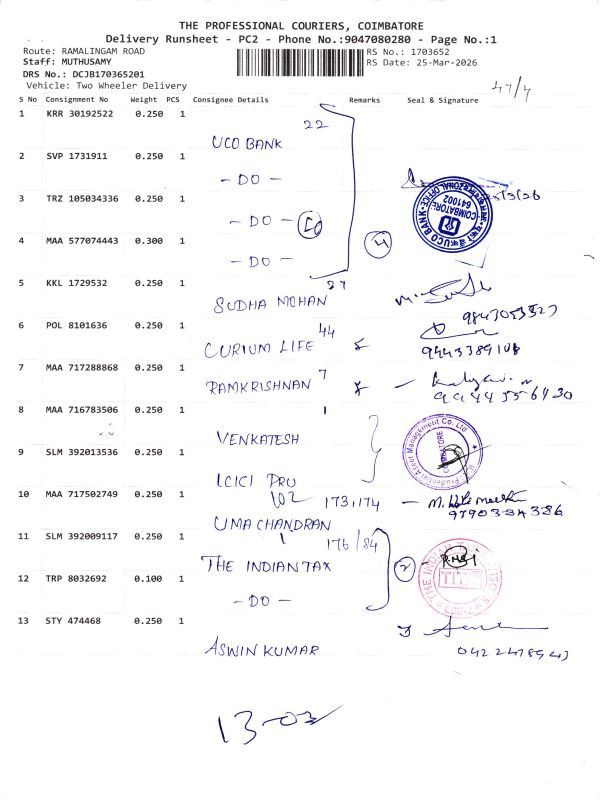 THE PROFESSIONAL COURIERS, COIMBATORE
Delivery Runsheet - PC2 - Phone No.:9047080280 - Page No.:1
Route: RAMALINGAM ROAD
RS No.: 1703652
Staff: MUTHUSAMY
RS Date: 25-Mar-2026
DRS No.: DCJB170365201
Vehicle: Two Wheeler Delivery
S No Consignment No Weight PCS Consignee Details Remarks Seal & Signature
1 KRR 30192522 0.250 1 22
UCO BANK
2 SVP 1731911 0.250 1
- DO -
3 TRZ 105034336 0.250 1
- DO -
4 MAA 577074443 0.300 1 4
- DO -
UCO BANK
COIMBATORE
641002
ZONAL OFFICE
5 KKL 1729532 0.250 1 27
SUDHA MOHAN
6 POL 8101636 0.250 1 44
CURIUM LIFE
7 MAA 717288868 0.250 1 7
RAMKRISHNAN
8 MAA 716783506 0.250 1 1
VENKATESH
9 SLM 392013536 0.250 1
ICICI PRU
Prudential Asset Management Co. Ltd
COIMBATORE
10 MAA 717502749 0.250 1 102 173,174
UMA CHANDRAN
11 SLM 392009117 0.250 1 1 176/84
THE INDIAN TAX
12 TRP 8032692 0.100 1 2
- DO -
THE INDIAN
13 STY 474468 0.250 1
ASWIN KUMAR